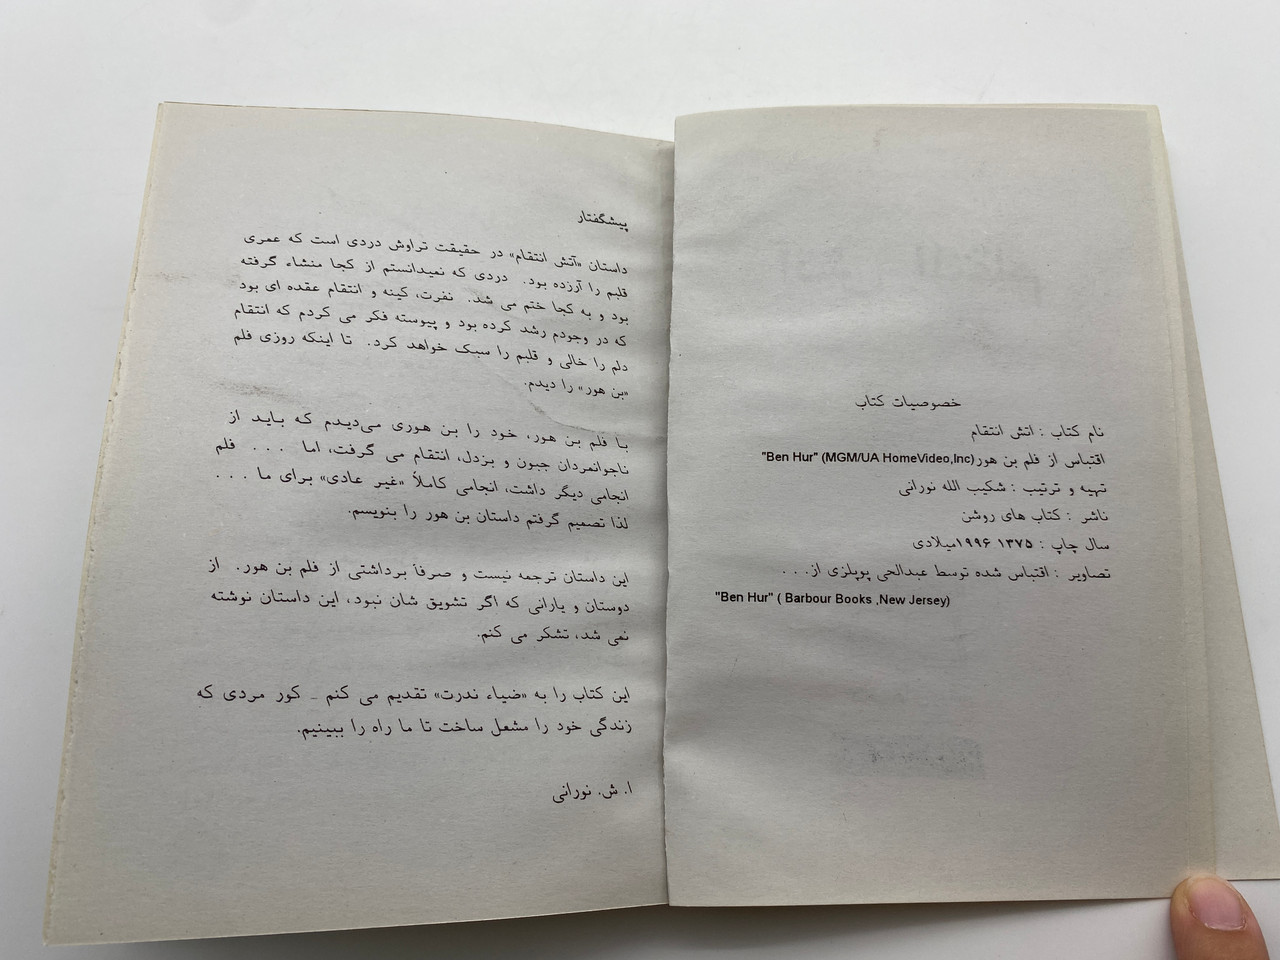 خصوصیات کتاب
نام کتاب : اتش انتقام
اقتباس از فلم بن هور"Ben Hur" (MGM/UA HomeVideo,Inc)
تهیه و ترتیب : شکیب الله نورانی
ناشر : کتاب های روشن
سال چاپ : ۱۳۷۵ ۱۹۹۶میلادی
تصاویر : اقتباس شده توسط عبدالحی پوپلزی از. . .
"Ben Hur" ( Barbour Books ,New Jersey)
پیشگفتار
داستان «آتش انتقام» در حقیقت تراوش دردی است که عمری
قلبم را آزرده بود. دردی که نمیدانستم از کجا منشاء گرفته
بود و به کجا ختم می شد. نفرت، کینه و انتقام عقده ای بود
که در وجودم رشد کرده بود و پیوسته فکر می کردم که انتقام
دلم را خالی و قلبم را سبک خواهد کرد. تا اینکه روزی فلم
«بن هور» را دیدم.
با فلم بن هور، خود را بن هوری می‌دیدم که باید از
ناجوانمردان جبون و بزدل، انتقام می گرفت، اما . . . فلم
انجامی دیگر داشت، انجامی کاملاً «غیر عادی» برای ما . . .
لذا تصمیم گرفتم داستان بن هور را بنویسم.
این داستان ترجمه نیست و صرفاً برداشتی از فلم بن هور. از
دوستان و یارانی که اگر تشویق شان نبود، این داستان نوشته
نمی شد، تشکر می کنم.
این کتاب را به «ضیاء ندرت» تقدیم می کنم - کور مردی که
زندگی خود را مشعل ساخت تا ما راه را ببینیم.
ا. ش. نورانی